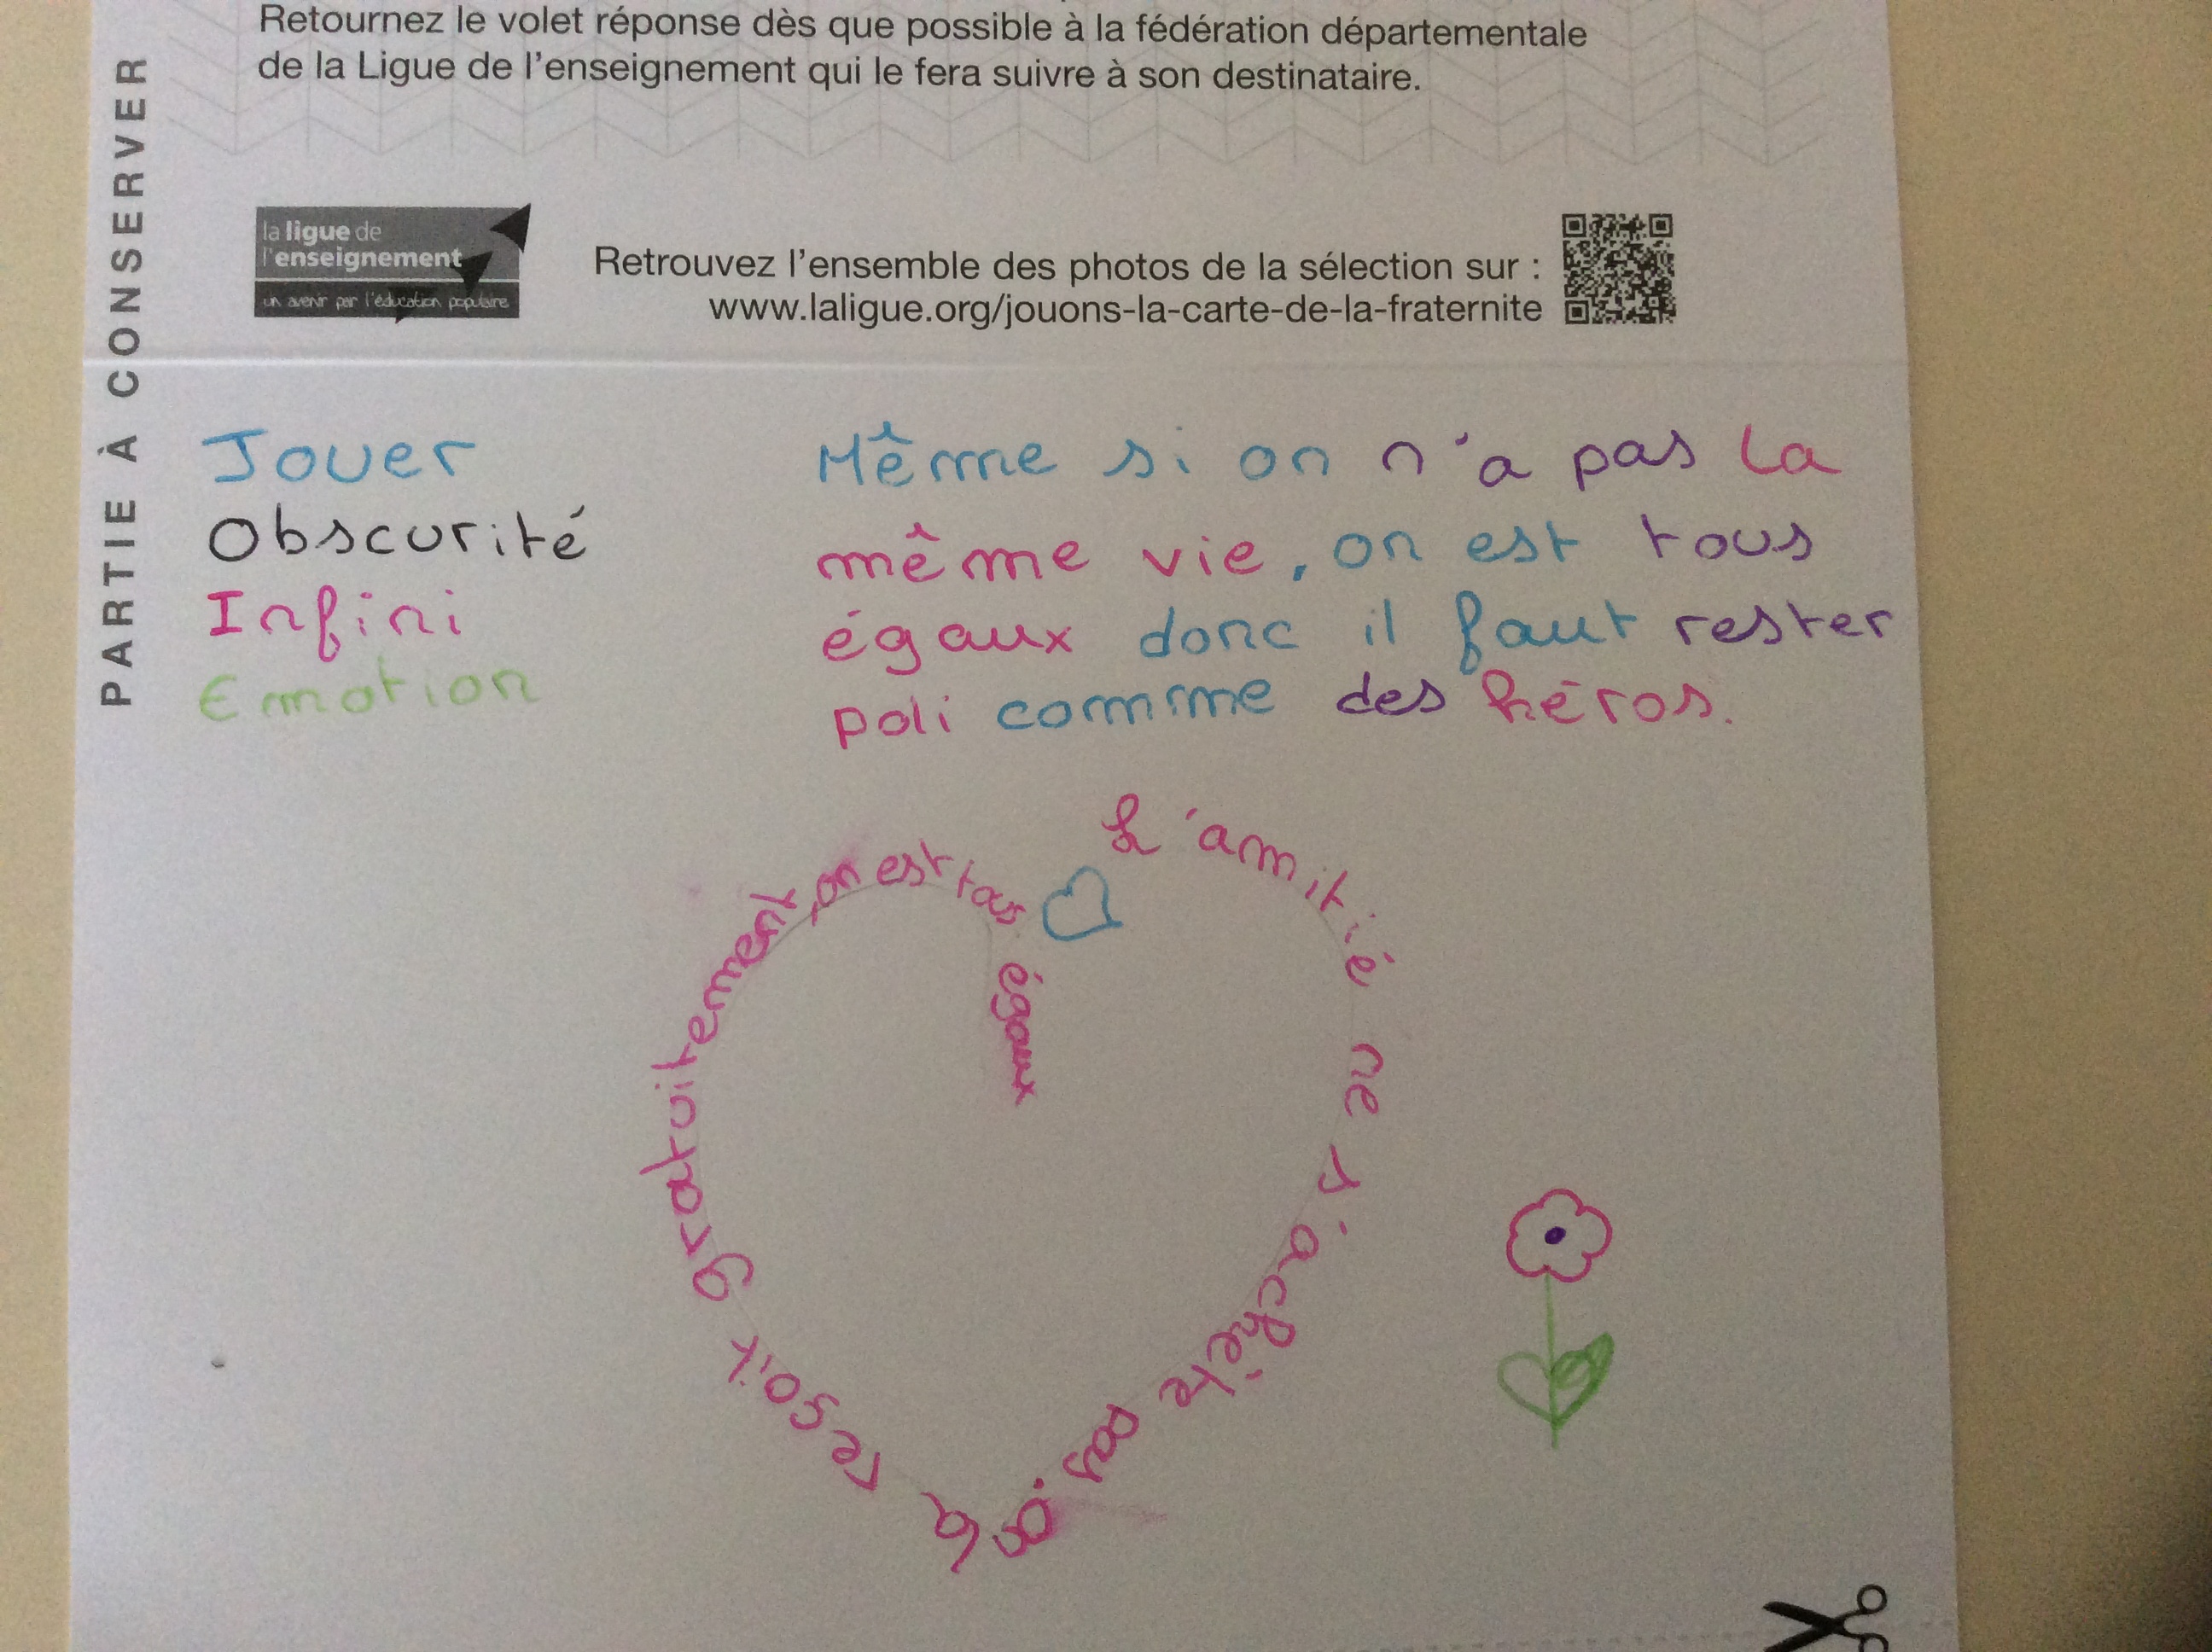 Retournez le volet réponse dès que possible à la fédération départementale
de la Ligue de l'enseignement qui le fera suivre à son destinataire.
PARTIE À CONSERVER
la ligue de
l'enseignement
un avenir par l'éducation populaire
Retrouvez l'ensemble des photos de la sélection sur :
www.laligue.org/jouons-la-carte-de-la-fraternite
Jouer
Obscurité
Infini
Emotion
Même si on n'a pas la
même vie, on est tous
égaux donc il faut rester
poli comme des héros.
L'amitié ne s'achète pas. on la resoit gratuitement, on est tous égaux